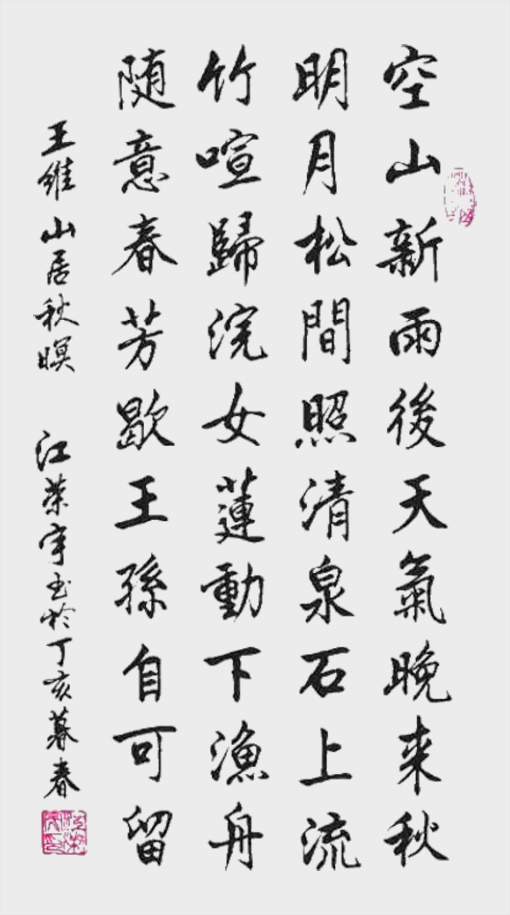 空山新雨後天氣晚来秋
明月松間照清泉石上流
竹喧歸浣女蓮動下漁舟
随意春芳歇王孫自可留
王維山居秋暝 江荣宇书於丁亥暮春